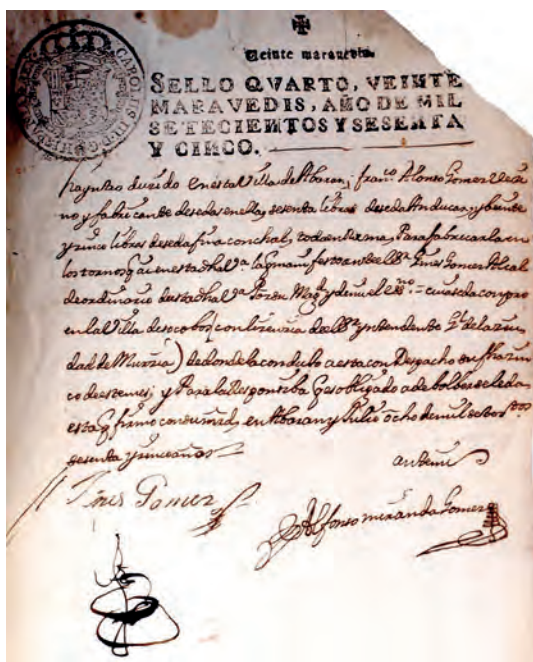 Veinte maravedis.
SELLO QVARTO, VEINTE
MARAVEDIS, AÑO DE MIL
SETECIENTOS Y SESENTA
Y CINCO.
CAROLUS III D G HISPANIAR
en esta Villa de Abaran, fran.co Alonso Gomez Veci
no y fabricante de sedas en ella, sesenta libras de seda Anducar, y beinte
y cinco libras de seda fina conchal, toda en rrama, Para fabricarla en
los tornos q.e ai en esta d.ha V.a Gines Gomez Alcal
de ordinario de esta d.ha V.a Por su Mag.d y de mi el es.no cuia seda compro
en la Villa de socobos (con lizenzia del S.r yntendente G.l de la ziu
dad de Murzia) de donde la condujo a esta con Despacho su fha zin
co de este mes; y Para la Responsiba q.e es obligado a de bolber se le da
esta q.e firmo con su m.d, en Abaran y Julio ocho de mil setez.tos
sesenta y cinco años
ante mi
Gines Gomez
Alfonso miranda Gomez